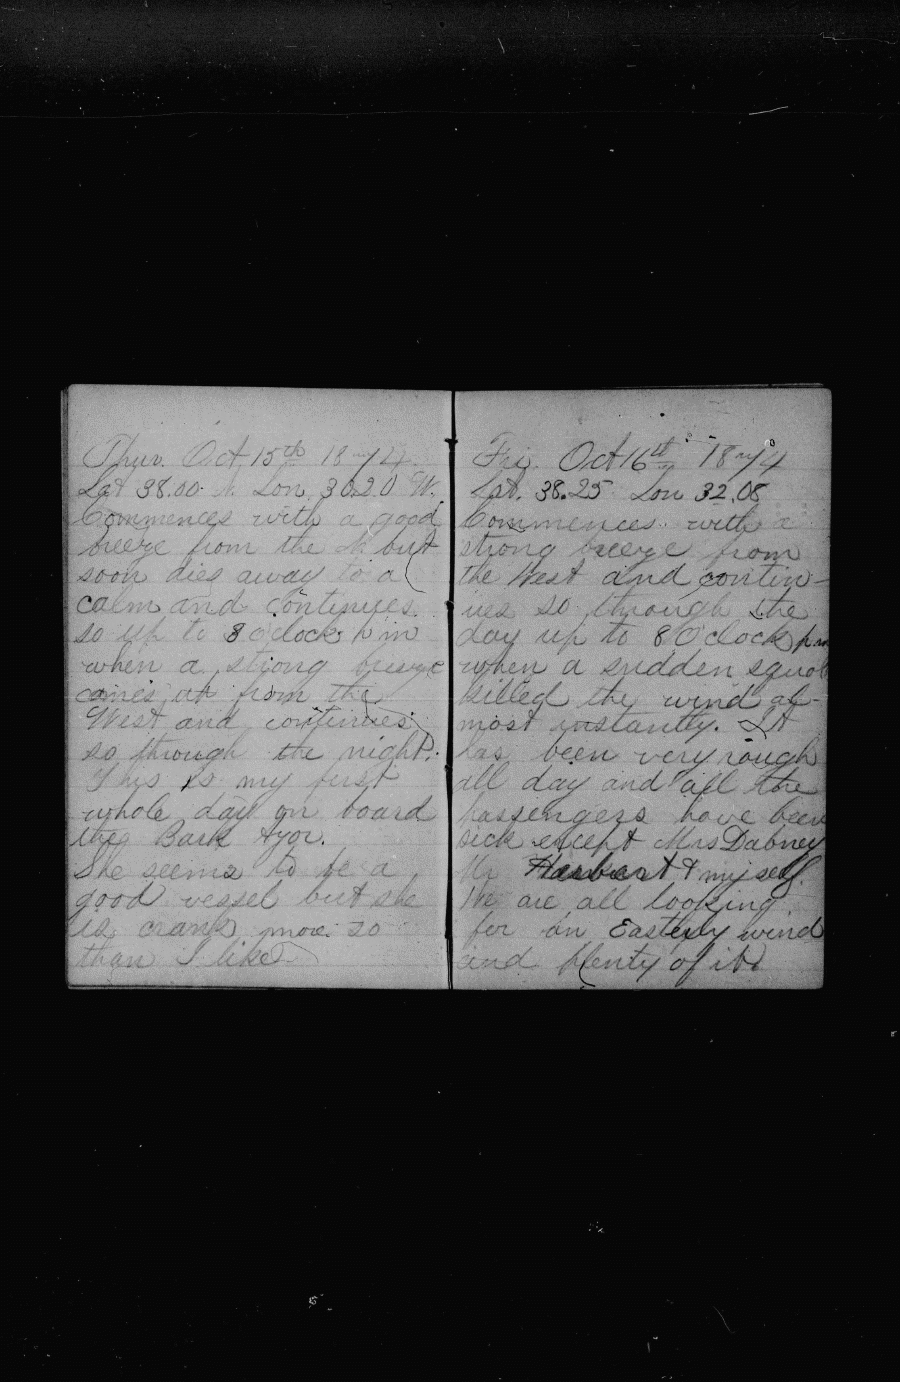 Thur. Oct 15th 1874.
Lat 38.00 N. Lon. 30.20 W.
Commences with a good
breeze from the N. but
soon dies away to a
calm and continues
so up to 8 o'clock p m
when a strong breeze
comes at from the
West and continues
so through the night.
This is my first
whole day on board
the Bark
She seems to be a
good vessel but she
is crank more so
than I like
Fri. Oct 16th 1874
Lat. 38.25 Lon 32.08
Commences with a
strong breeze from
the West and contin-
ues so through the
day up to 8 O'clock p m
when a sudden squall
killed the wind al-
most instantly. It
has been very rough
all day and all the
passengers have been
sick except Mrs Dabney
Mr Herbert & myself.
We are all looking
for an Easterly wind
and plenty of it